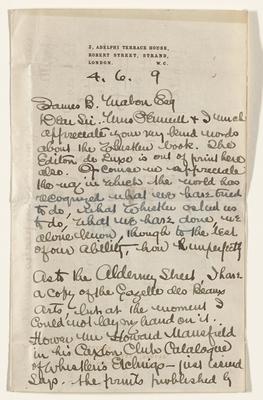 3, ADELPHI TERRACE HOUSE,
ROBERT STREET, STRAND,
LONDON. W.C.
4. 6. 9
James B. Mabon Esq
Dear Sir. Mrs Pennell & I much
appreciate your very kind words
about the Whistler book. The
Edition de Luxe is out of print here
also. Of course we appreciate
the way in which the world has
recognized what we have tried
to do, what Whistler asked us
to do, what we have done, we
alone know, though to the best
of our ability, how imperfectly
As to the Alderney Street, I have
a copy of the Gazette des Beaux
Arts but at the moment I
could not lay my hand on it.
However Mr Howard Mansfield
in his Caxton Club Catalogue
of Whistler's Etchings – just issued
says. the prints published by